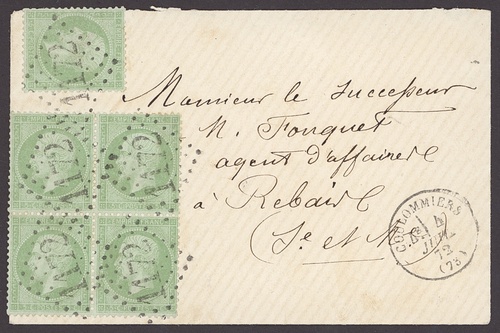 1172
1172
1172
1172
1172
Monsieur le Successeur
N. Fouquet
agent d'affaires
à Rebais
(Se et M
COULOMMIERS
4
JUIL.
72
(73)